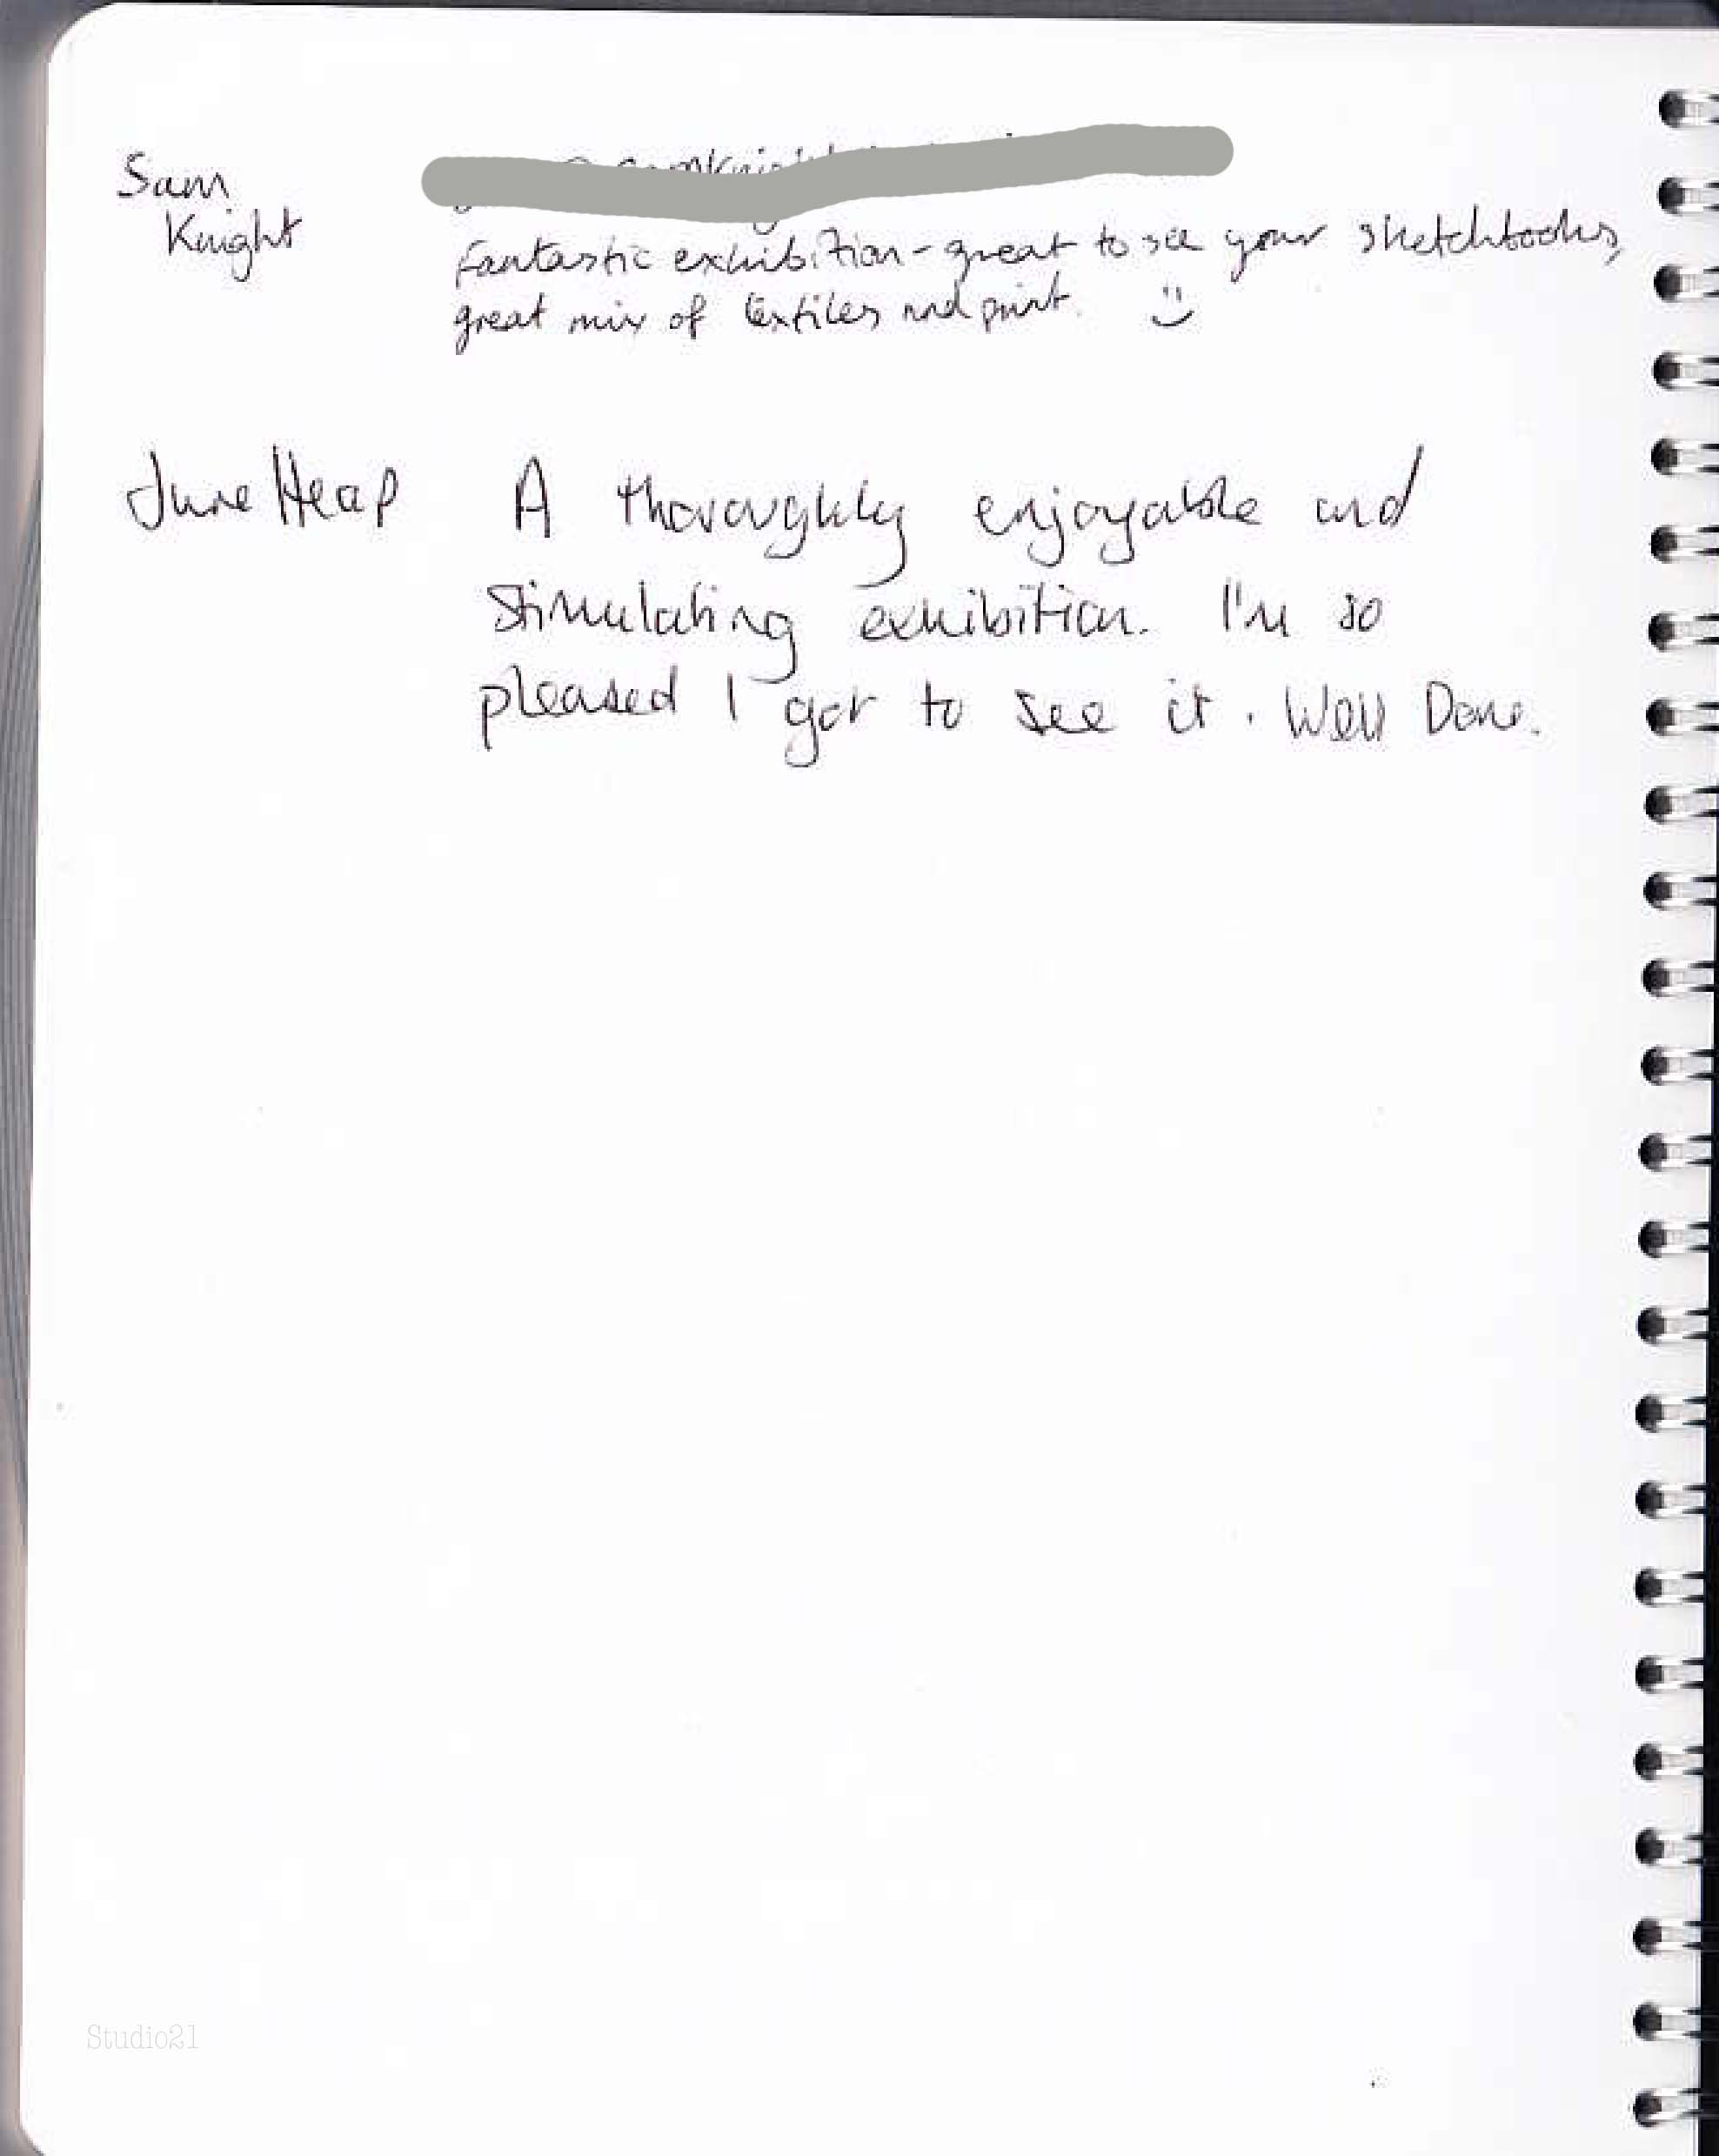 Sam
Knight
Fantastic exhibition - great to see your sketchbooks,
great mix of textiles and print. :)
June Heap
A thoroughly enjoyable and
stimulating exhibition. I'm so
pleased I got to see it. Well Done.
Studio21